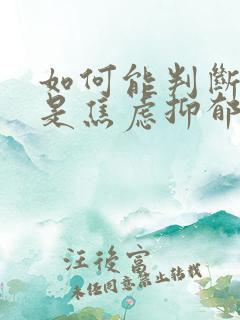 如何能判斷
是焦虑抑郁
汪後富
未经同意禁止转载